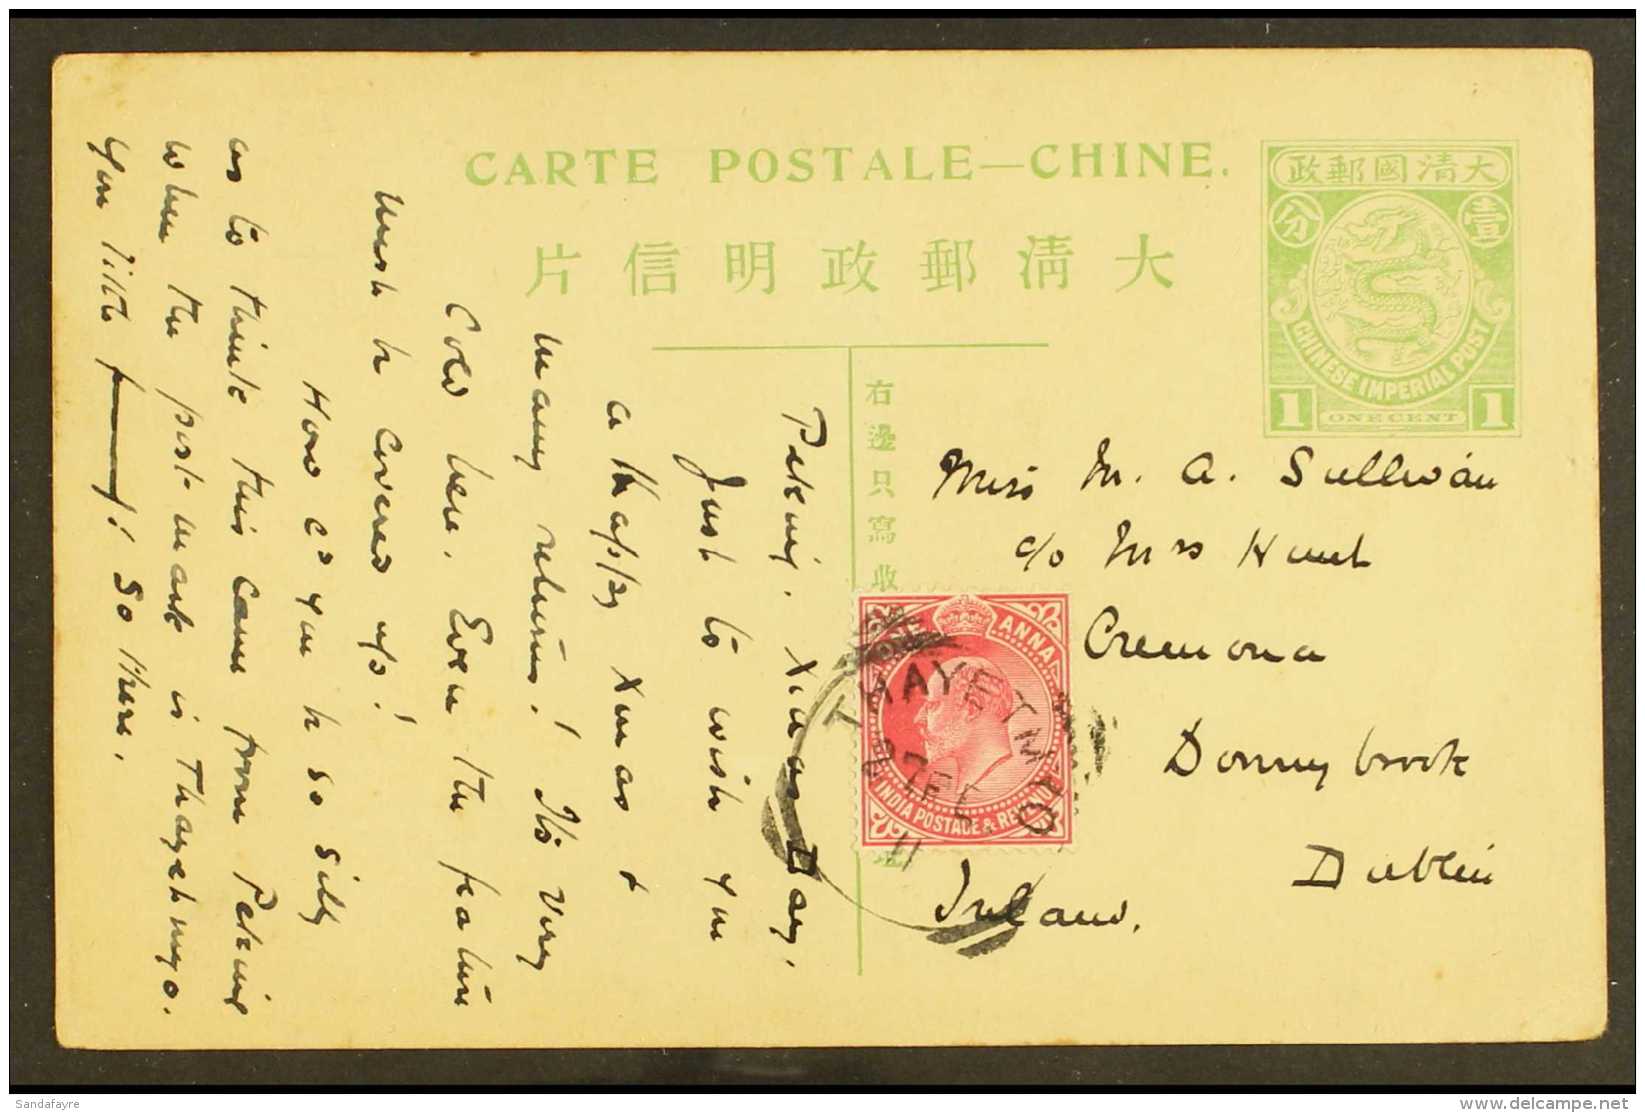 CARTE POSTALE—CHINE.
大清國郵政
壹
分
CHINESE IMPERIAL POST
1 ONE CENT 1
片信明政郵清大
右邊只寫收
Peking. Xmas Day.
Just to wish you
a happy Xmas +
many returns! It's very
Cold here. Even the
must be covered up!
How cd you be so silly
as to think this came from Peking
when the post-mark is Thayetmyo.
You little f———! So there.
Miss M. A. Sullivan
c/o Mrs Hunt
Cremona
Donnybrook
Dublin
Ireland.
ONE ANNA
INDIA POSTAGE & REVENUE
THAYETMYO
DE
11
Sandafayre
www.delcampe.net